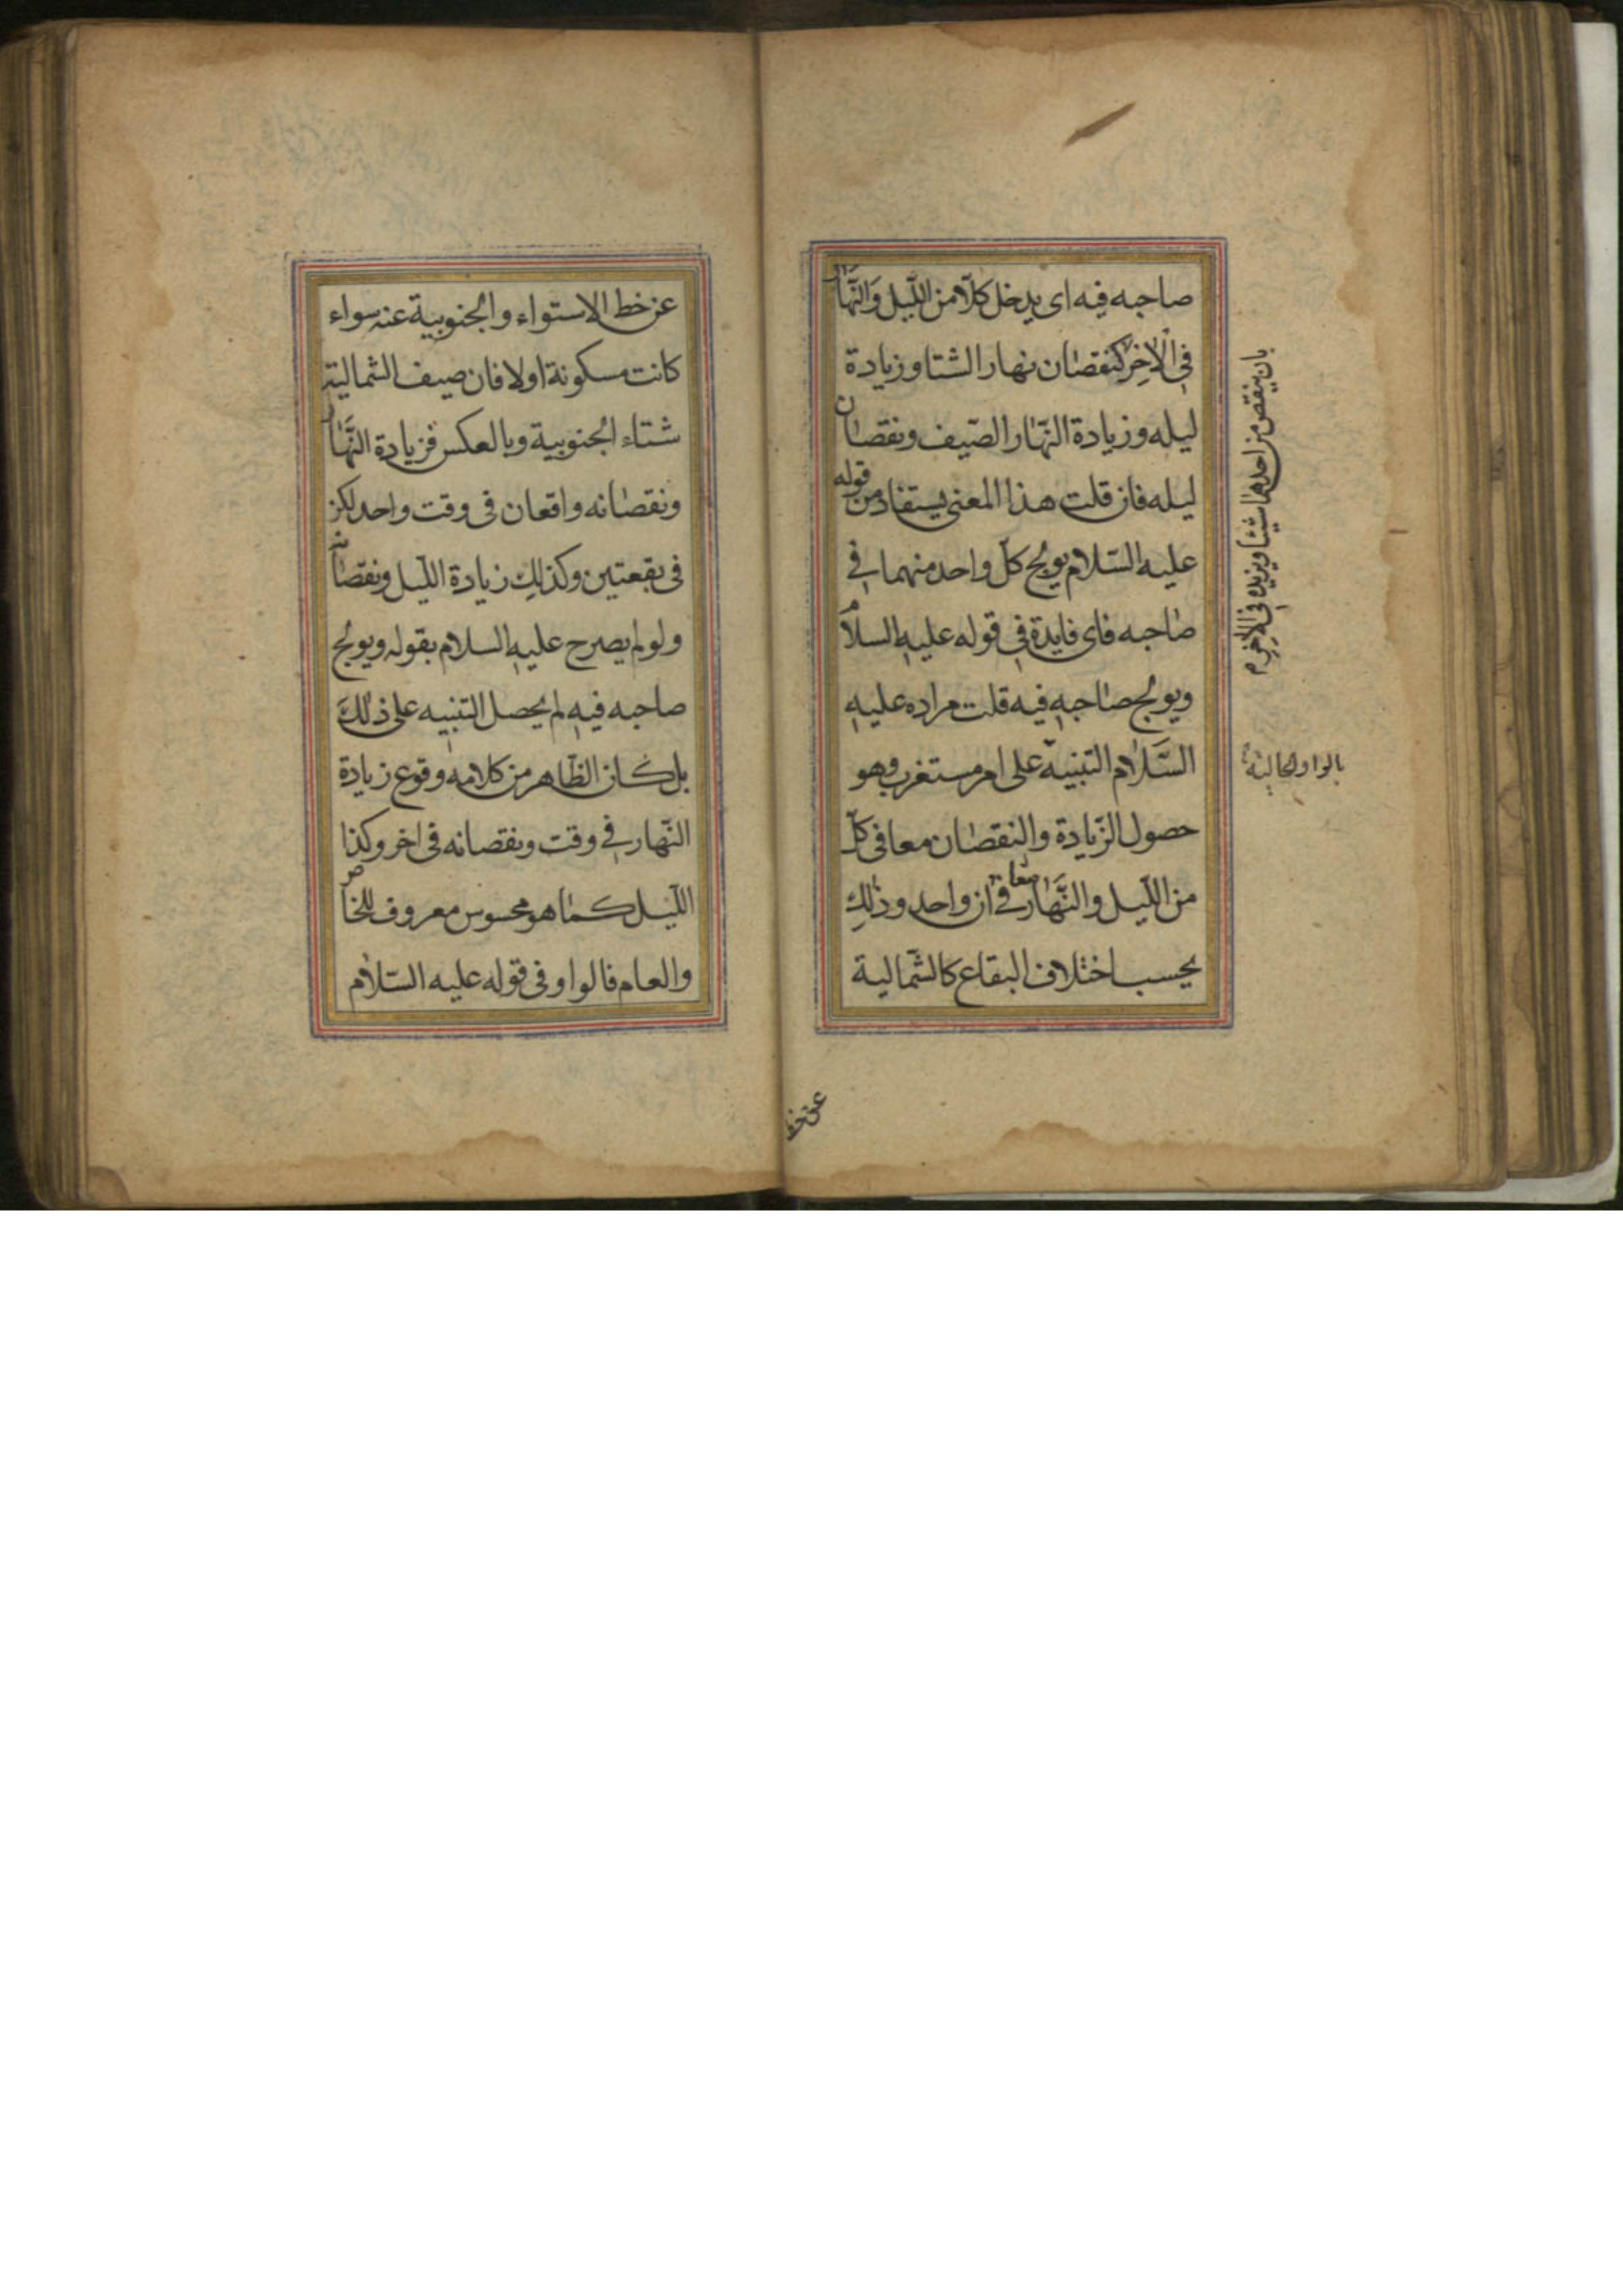 صاحبه فيه اى يدخل كلّا من اللّيل وَالنَّهَار
فِى الْاخِر كنقصان نهار الشتا وزيادة
ليله وزيادة النّهار الصّيف ونقصان
ليله فان قلت هذا المعنى يستفاد من قوله
عليه السّلام يولج كلّ واحد منهما فِى
صاحبه فاى فايدة فِى قوله عليهِ السلام
ويولج صاحبهِ فيه قلت مراده عليهِ
السَّلام التنبيه على امر مستغرب وهو
حصول الزّيادة والنقصان معا فى كلّ
من اللّيل والنَّهَار معا فِى ان واحد وذلك
بحسب اختلاف البقاع كالشّمالية
بان ينقص من احدهما شيئا ويزيده فِى الاخر م
بالواو الحالية
عن خط
عن خط الاستواء والجنوبية عنه سواء
كانت مسكونة اولا فان صيف الشمالية
شتاء الجنوبية وبالعكس فزيادة النَّهَار
ونقصانه واقعان فى وقت واحد لكن
فى بقعتين وكذلك زيادة اللّيل ونقصانه
ولو لم يصرح عليهِ السلام بقوله ويولج
صاحبه فيهِ لم يحصل التنبيه على ذلكَ
بل كان الظّاهر من كلامه وقوع زيادة
النّهار فِى وقت ونقصانه فى اخر وكذا
اللّيل كما هو محسوس معروف للخاص
والعام فالواو فى قوله عليه السّلام